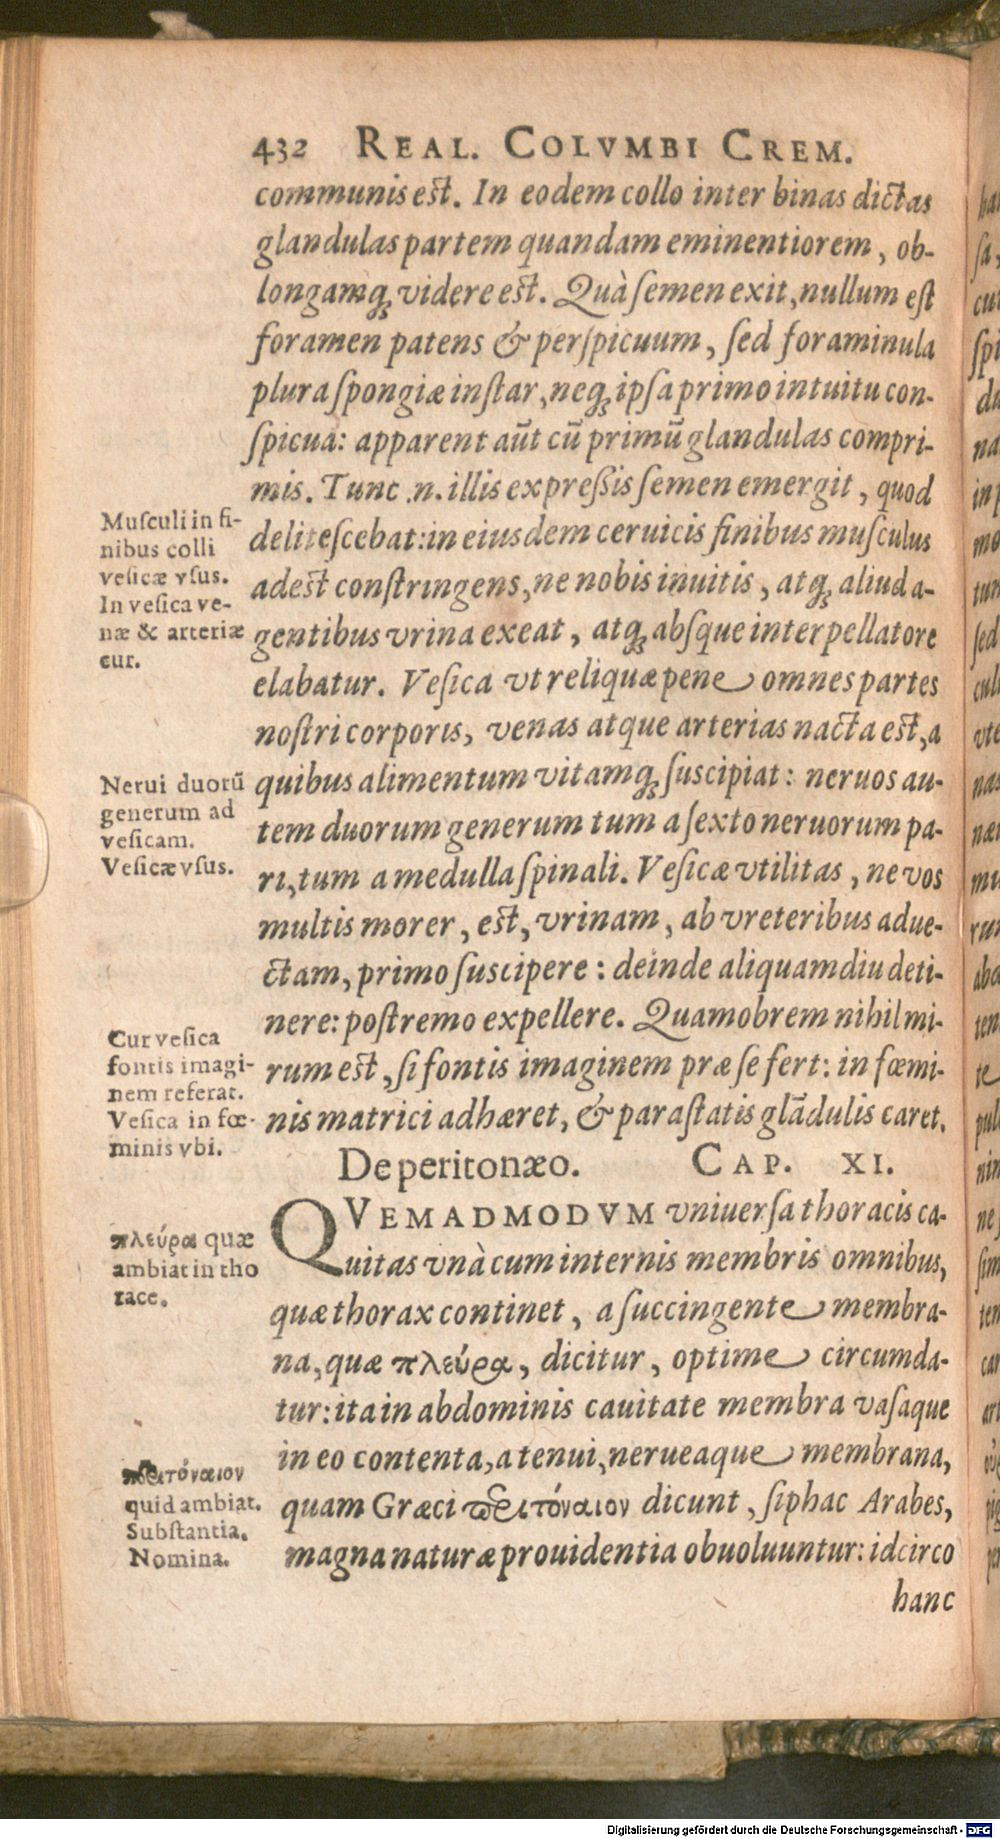 432 REAL. COLVMBI CREM.
communis est. In eodem collo inter binas dictas
glandulas partem quandam eminentiorem, ob-
longamq́; videre est. Quà ſemen exit, nullum eſt
foramen patens & perſpicuum, ſed foraminula
plura ſpongiæ inſtar, neq́; ipſa primo intuitu con-
ſpicua: apparent aūt cū primū glandulas compri-
mis. Tunc .n. illis expreſsis ſemen emergit, quod
deliteſcebat: in eiusdem ceruicis finibus muſculus
adest conſtringens, ne nobis inuitis, atq́; aliud a-
gentibus vrina exeat, atq́; abſque interpellatore
elabatur. Veſica vt reliquæ pene omnes partes
noſtri corporis, venas atque arterias nacta est, a
quibus alimentum vitamq́; ſuscipiat: neruos au-
tem duorum generum tum a ſexto neruorum pa-
ri, tum a medulla ſpinali. Veſicæ vtilitas, ne vos
multis morer, est, vrinam, ab vreteribus adue-
ctam, primo ſuscipere: deinde aliquamdiu deti-
nere: poſtremo expellere. Quamobrem nihil mi-
rum est, ſi fontis imaginem præ se fert: in fœmi-
nis matrici adhæret, & paraſtatis glādulis caret.
Muſculi in fi-
nibus colli
veſicæ vſus.
In veſica ve-
næ & arteriæ
cur.
Nerui duorū
generum ad
veſicam.
Veſicæ vſus.
Cur veſica
fontis imagi-
nem referat.
Veſica in fœ-
minis vbi.
De peritonæo. CAP. XI.
QVEMADMODVM vniuerſa thoracis ca-
uitas vnà cum internis membris omnibus,
quæ thorax continet, a ſuccingente membra-
na, quæ πλεύρα, dicitur, optime circumda-
tur: ita in abdominis cauitate membra vaſaque
in eo contenta, a tenui, nerueaque membrana,
quam Græci περιτόναιον dicunt, ſiphac Arabes,
magna naturæ prouidentia obuoluuntur: idcirco
hanc
πλεύρα quæ
ambiat in tho
race.
περιτόναιον
quid ambiat.
Subſtantia.
Nomina.
Digitalisierung gefördert durch die Deutsche Forschungsgemeinschaft - DFG